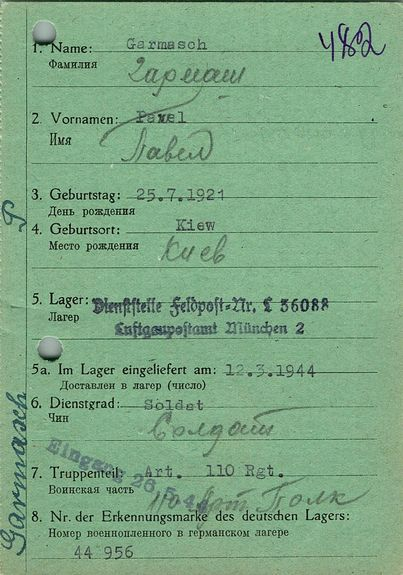 482
1. Name: Garmasch
Фамилия
Гармаш
2. Vornamen: Pawel
Имя
Павел
3. Geburtstag: 25.7.1921
День рождения
4. Geburtsort: Kiew
Место рождения
Киев
5. Lager: Dienststelle Feldpost-Nr. L 36088
Лагер
Luftgaupostamt München 2
5a. Im Lager eingeliefert am: 12.3.1944
Доставлен в лагер (число)
6. Dienstgrad: Soldat
Чин
Солдат
Eingang 26.
7. Truppenteil: Art. 110 Rgt.
Воинская часть
110 арт Полк
8. Nr. der Erkennungsmarke des deutschen Lagers:
Номер военнопленного в германском лагере
44 956
Garmasch P